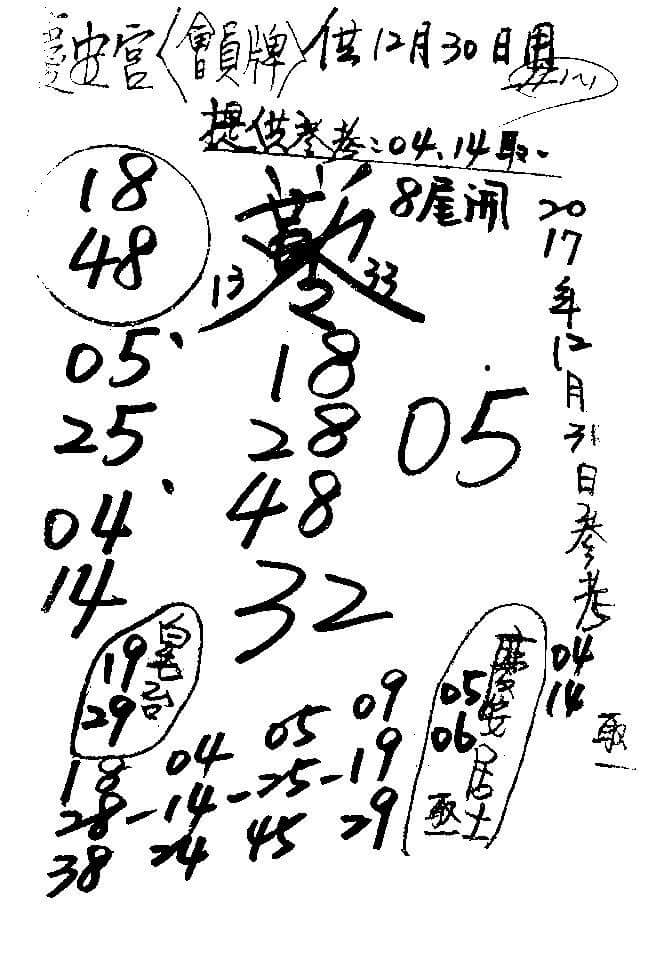 安宮〈會員牌〉供12月30日用
提供參考:04、14取一
8尾開
18
48
13 33
05、
25
04、
14
18
28
48
32
05
2017年12月31日參考
04
14
取一
19
29
05
06
慶安居士
取一
18 04 05 09
28-14-25-19
38 24 45 29